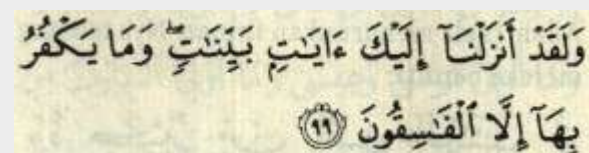 وَلَقَدْ أَنزَلْنَآ إِلَيْكَ ءَايَٰتٍۭ بَيِّنَٰتٍۖ وَمَا يَكْفُرُ
بِهَآ إِلَّا ٱلْفَٰسِقُونَ ۝٩٩